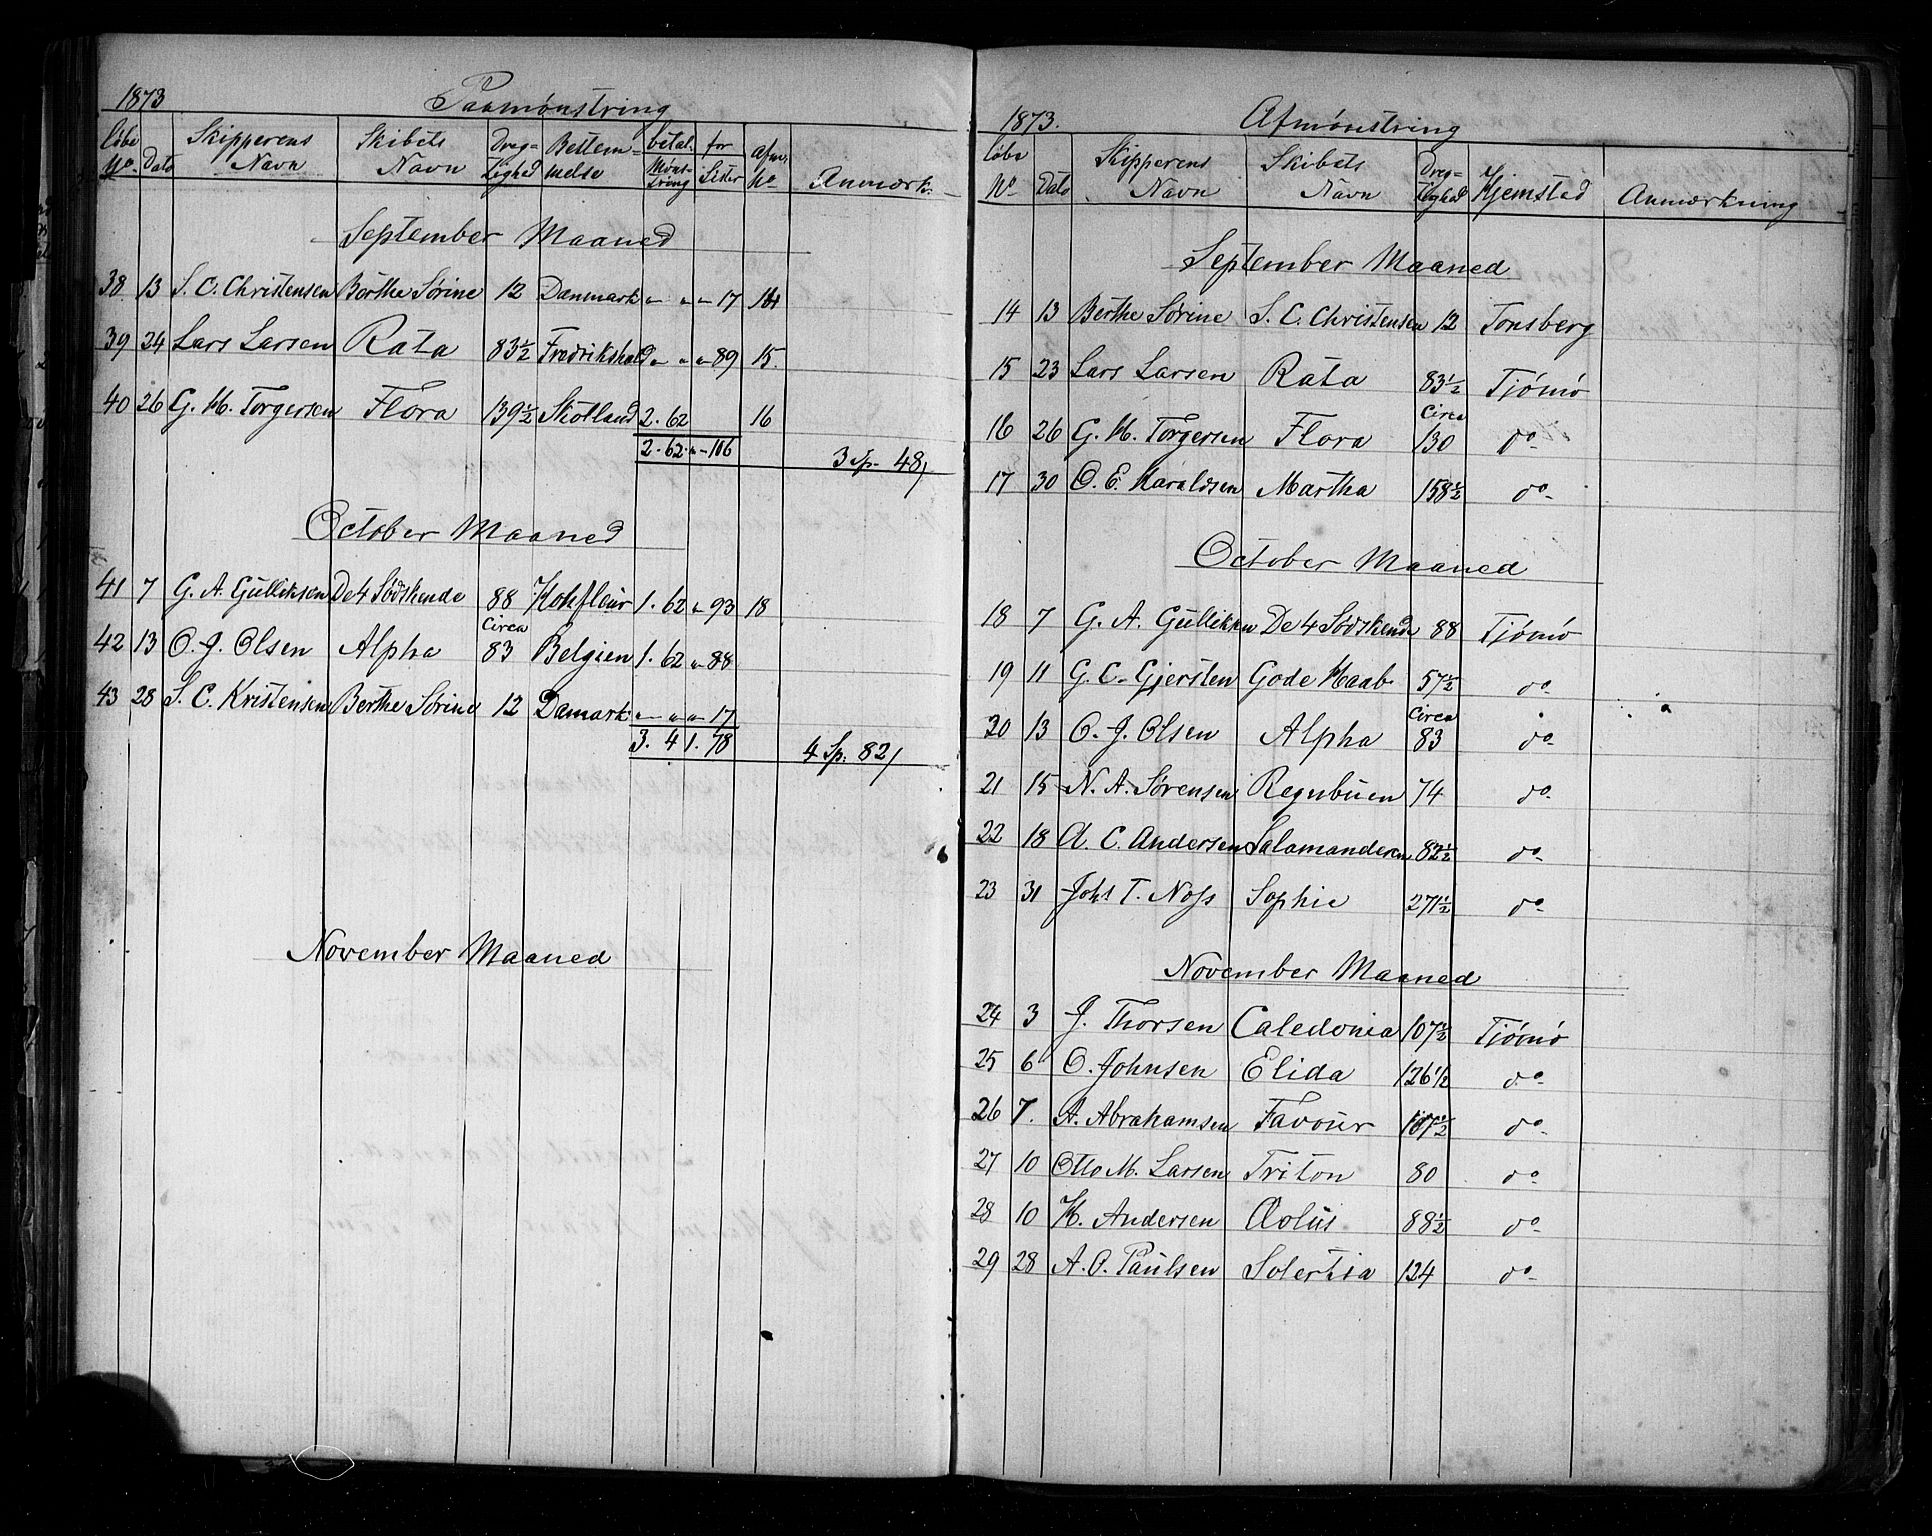 1873 Paamønstring
Løbe No. Dato Skipperens Navn Skibets Navn Dreg-tighed Bestem-melse betal. for Møns-tring Lister Afm. No Anmærk.
September Maaned
38 13 S. C. Christensen Berthe Sørine 12 Danmark " " " 17 14
39 24 Lars Larsen Rata 83½ Fredrikshald " " " 89 15.
40 26 G. H. Torgersen Flora 139½ Skotland 2. 62 16
2. 62. " - 106
3 Sp. 48/
October Maaned
41 7 G. A. Gulliksen De 4 Sødskende 88 Hohfleur 1. 62 " 93 18
42 13 O. J. Olsen Alpha Circa 83 Belgien 1. 62 " 88
43 28 S. C. Kristensen Berthe Sørine 12 Damark " " " 17
3. 4 1. 78
4 Sp. 82/
November Maaned
1873. Afmønstring
Løbe No Dato Skipperens Navn Skibets Navn Dreg-tighed Hjemsted Anmærkning
September Maaned
14 13 Berthe Sørine S. C. Christensen 12 Tonsberg
15 23 Lars Larsen Rata 83½ Tjømø
16 26 G. H. Torgersen Flora Circa 130 do
17 30 O. E. Haraldsen Martha 158½ do
October Maaned
18 7 G. A. Gullikken De 4 Sødskende 88 Tjømø
19 11 G. C. Gjersten Gode Haab 57½ do
20 13 O. J. Olsen Alpha Circa 83 do
21 15 N. A. Sørensen Regnbuen 74 do
22 18 A. C. Andersen Salamanderen 82½ do
23 31 Johs T. Noss Sophie 271½ do
November Maaned
24 3 J. Thorsen Caledonia 107½ Tjømø
25 6 O. Johnsen Elida 126½ do
26 7. A. Abrahamsen Favour 107½ do
27 10 Otto M. Larsen Triton 80 do
28 10 H. Andersen Æolus 88½ do
29 28 A. O. Paulsen Solertia 124 do